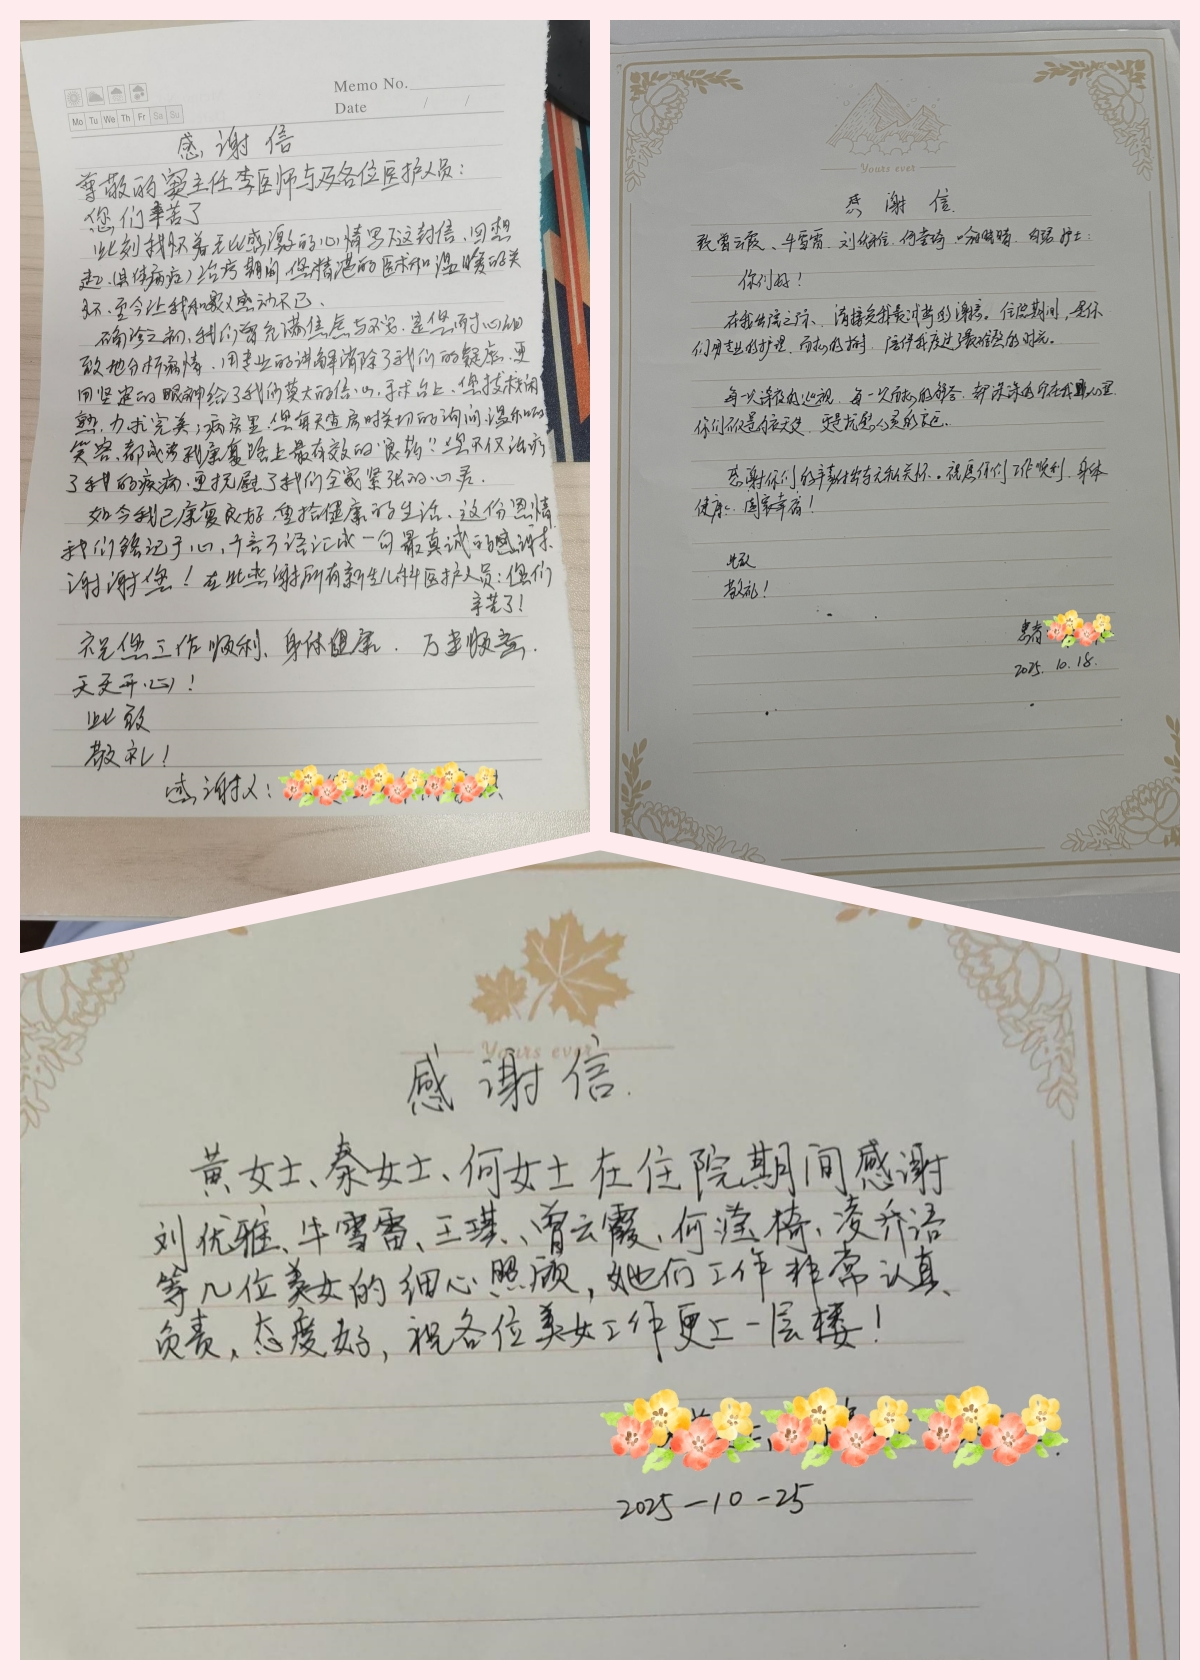 Memo No.
Date / /
Mo Tu We Th Fr Sa Su
感谢信
尊敬的窦主任李医师与及各位医护人员:
您们辛苦了
此刻我怀着无比感激的心情写下这封信,回想
起(具体病症)治疗期间,您精湛的医术和温暖的关
怀,至今让我和家人感动不已.
确诊之初,我们曾充满焦虑与不安,是您耐心细
致地分析病情,用专业的讲解消除了我们的疑虑,更
用坚定的眼神给了我们莫大的信心,手术台上,您技术娴
熟,力求完美;病房里,您每天查房时关切的询问,温和的
笑容,都成为我康复路上最有效的"良药"!您不仅治疗
了我的疾病,更抚慰了我们全家紧张的心君.
如今我已康复良好,重拾健康的生活,这份恩情
我们铭记于心,千言万语汇成一句最真诚的感谢
谢谢您!在此感谢所有新生儿科医护人员:您们
辛苦了!
祝您工作顺利、身体健康.万事顺意.
天天开心!
此致
敬礼!
感谢人:
Yours ever
感谢信.
致曾云霞、牛雪雷、刘优雅、何滢琦、护士:
你们好!
在我出院之际,请接受我最诚挚的谢意。住院期间,是你
们用专业的护理,耐心的,陪伴我度过了最难熬的时光。
每一次详细的巡视,每一次耐心的解答,都深深烙印在我心里
你们不仅是白衣天使,更是抚慰心灵的
感谢你们的辛勤付出与无私关怀。祝愿你们工作顺利,身体
健康,阖家幸福!
此致
敬礼!
患者
2025.10.18.
Yours ever
感谢信.
黄女士、秦女士、何女士在住院期间感谢
刘优雅、牛雪雷、王琪、曾云霞、何滢椅、凌乔语
等几位美女的细心照顾,她们工作非常认真、
负责,态度好,祝各位美女工作更上一层楼!
2025-10-25